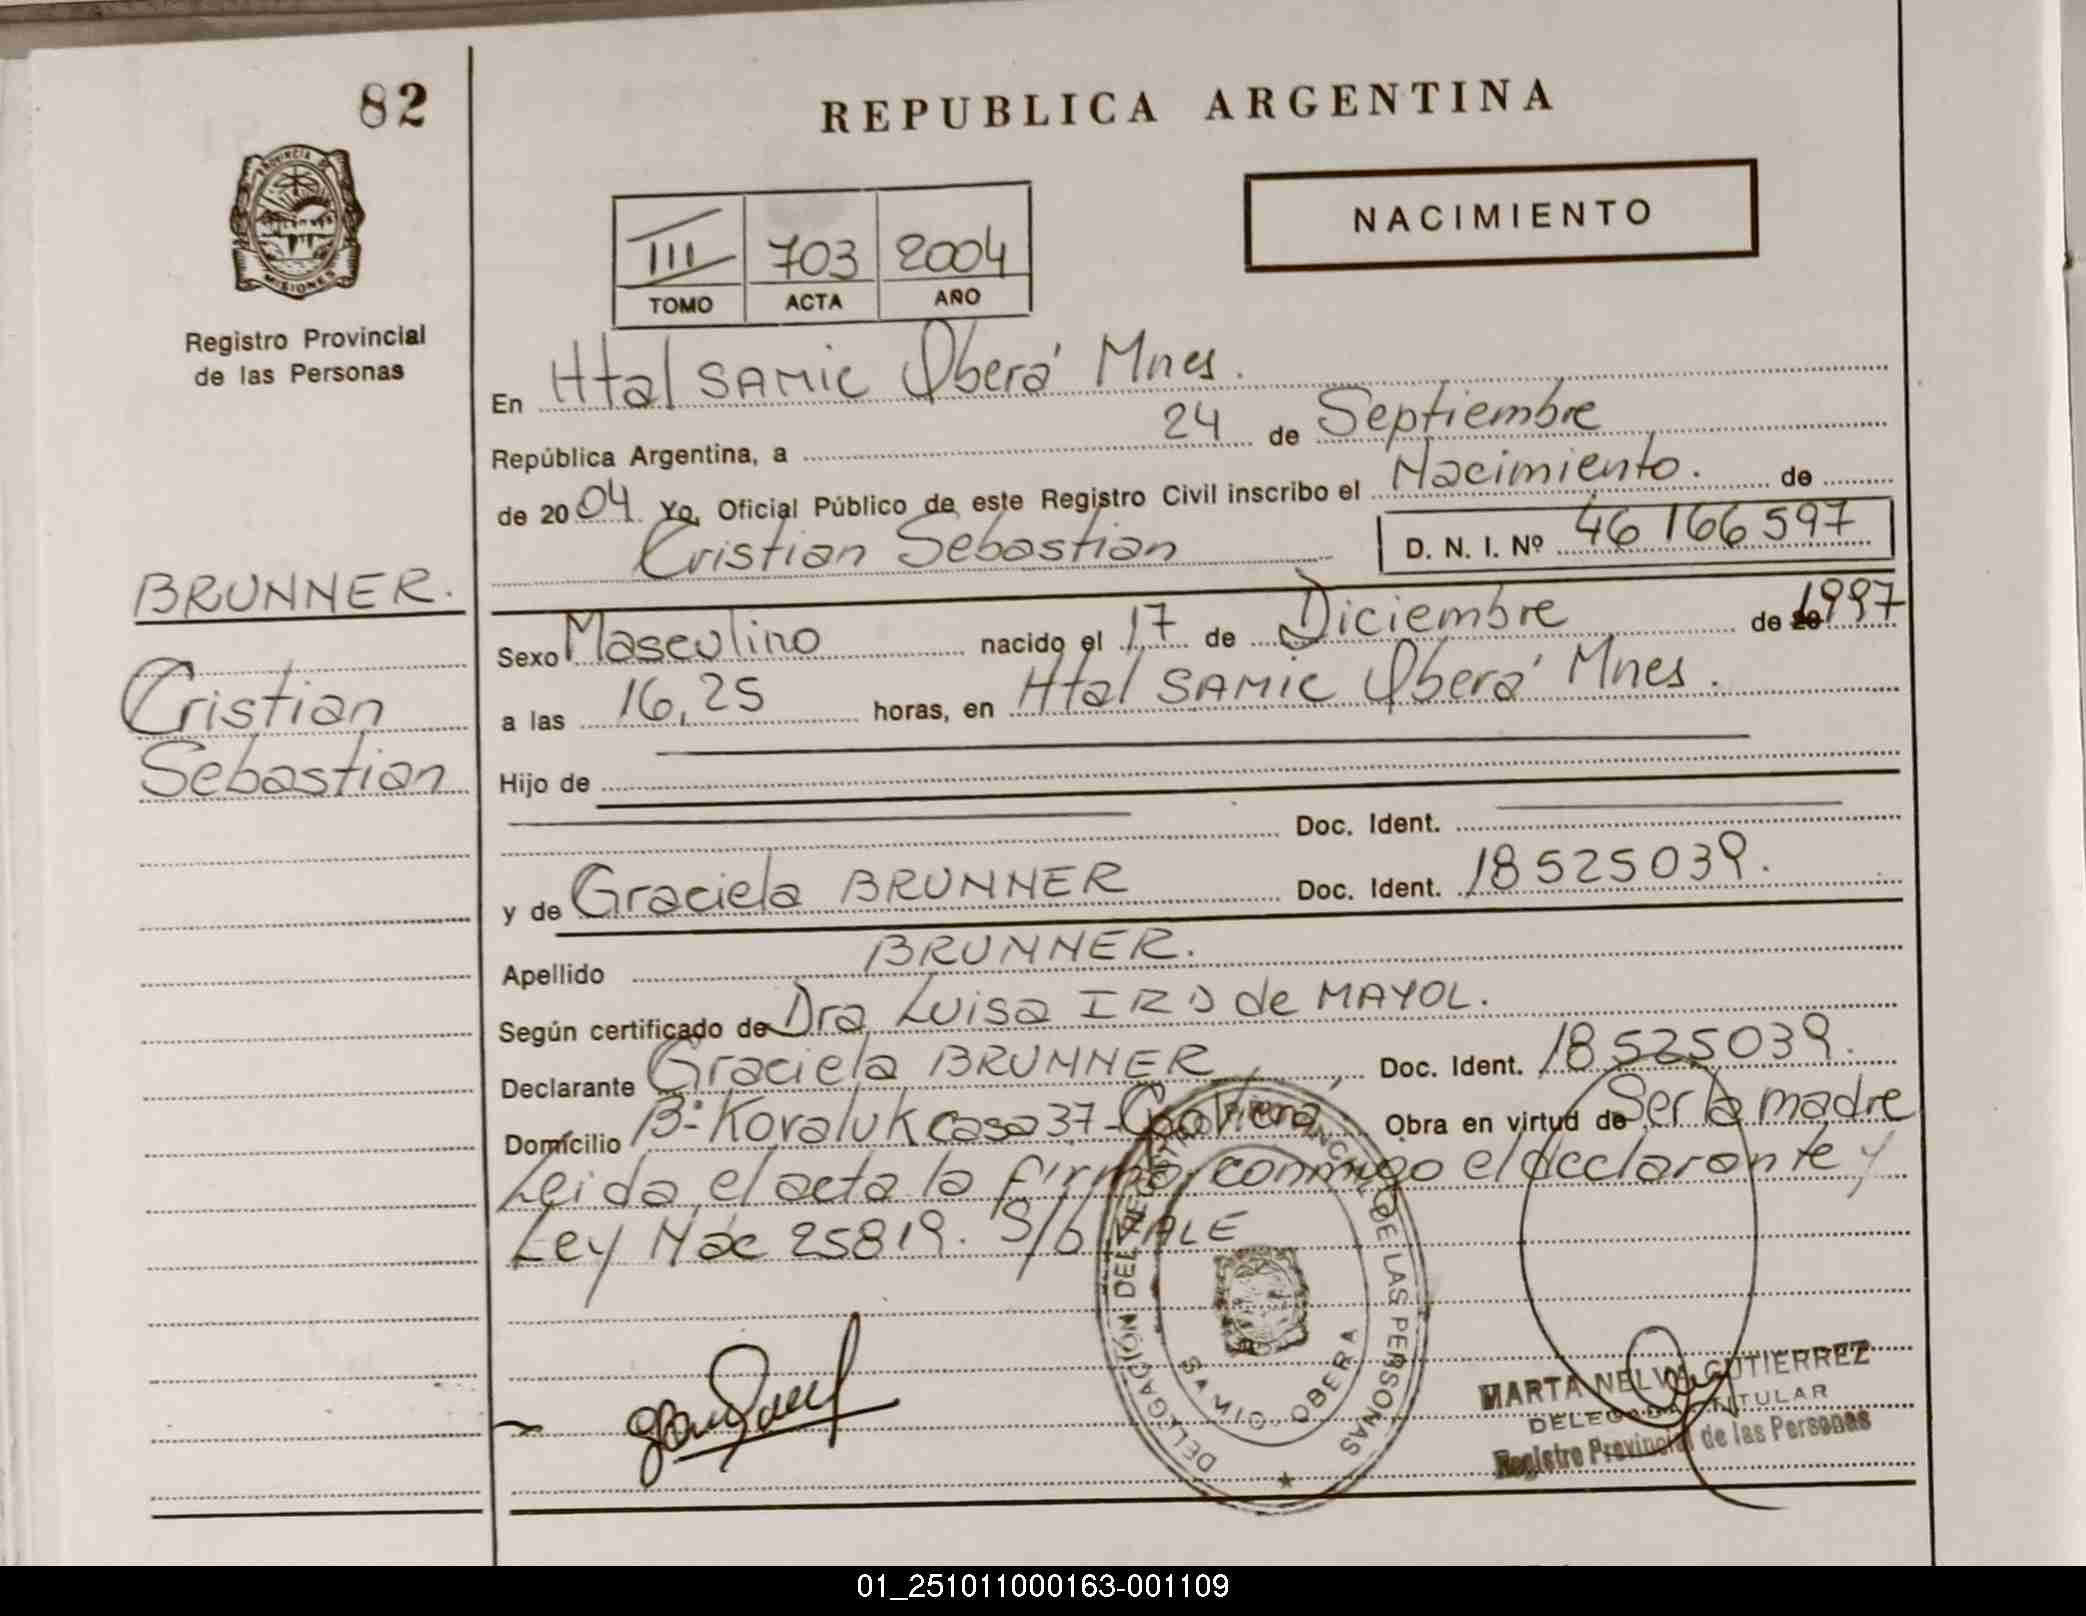 82
REPUBLICA ARGENTINA
NACIMIENTO
III 703 2004
TOMO ACTA AÑO
PROVINCIA DE
MISIONES
Registro Provincial
de las Personas
En Htal SAMIC Oberá Mnes.
República Argentina, a 24 de Septiembre
de 2004 Yo, Oficial Público de este Registro Civil inscribo el Nacimiento. de
Cristian Sebastian D. N. I. Nº 46166597
BRUNNER.
Cristian
Sebastian
Sexo Masculino nacido el 17 de Diciembre de 20 1997
a las 16,25 horas, en Htal SAMIC Oberá Mnes.
Hijo de
Doc. Ident.
y de Graciela BRUNNER Doc. Ident. 18525039.
Apellido BRUNNER.
Según certificado de Dra Luisa de MAYOL.
Declarante Graciela BRUNNER, Doc. Ident. 18525039.
Domicilio Bº Kovaluk casa 37- Obra en virtud de Ser la madre
Leida el acta la firma conmigo el declarante y
Ley Nac 25819. S/b VALE
DELEGACIÓN DEL REGISTRO PROVINCIAL DE LAS PERSONAS
SAMIC OBERA
MARTA NELVA GUTIERREZ
DELEGADA TITULAR
Registro Provincial de las Personas
01_251011000163-001109